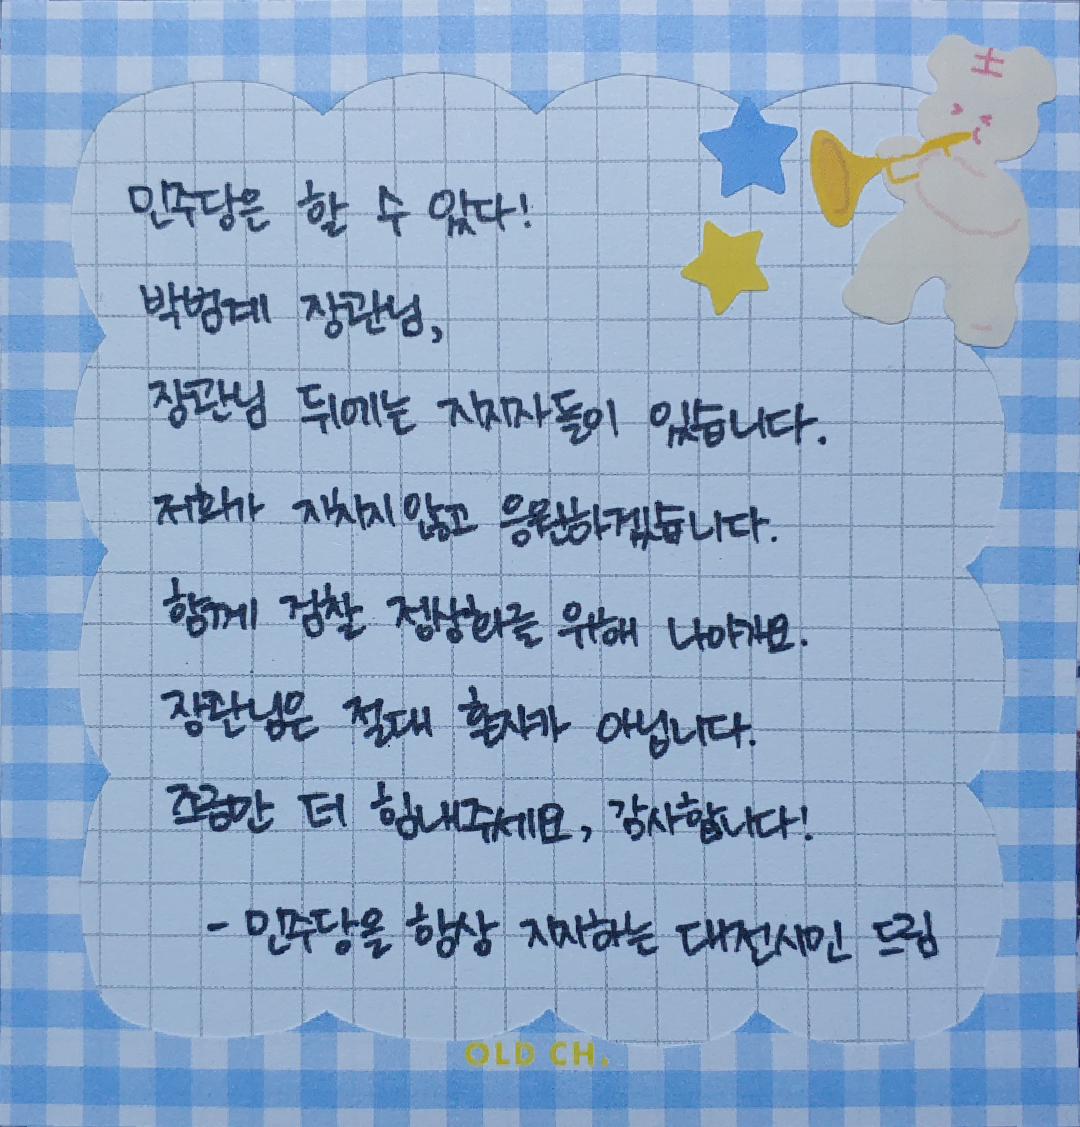 민주당은 할 수 있다!
박범계 장관님,
장관님 뒤에는 지지자들이 있습니다.
저희가 지치지 않고 응원하겠습니다.
함께 검찰 정상화를 위해 나아가요.
장관님은 절대 혼자가 아닙니다.
조금만 더 힘내주세요, 감사합니다!
- 민주당을 항상 지지하는 대전시민 드림
OLD CH.